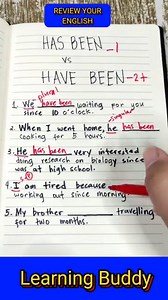 REVIEW YOUR
ENGLISH
HAS BEEN -1
vs
HAVE BEEN -2+
plural
1. We have been waiting for you
since 10 o'clock.
singular
2. When I went home, he has been
cooking for 5 hours.
3. He has been very interested
doing research on biology since
was at high school.
s
4. I am tired because
working out since morning.
5. My brother travelling
for two months.
Learning Buddy